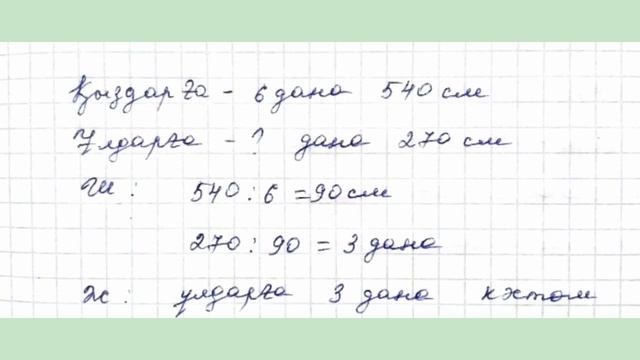 Қыздарға - 6 дана 540 см
Ұлдарға - ? дана 270 см
Ш: 540 : 6 = 90 см
270 : 90 = 3 дана
Ж: ұлдарға 3 дана кәстөм